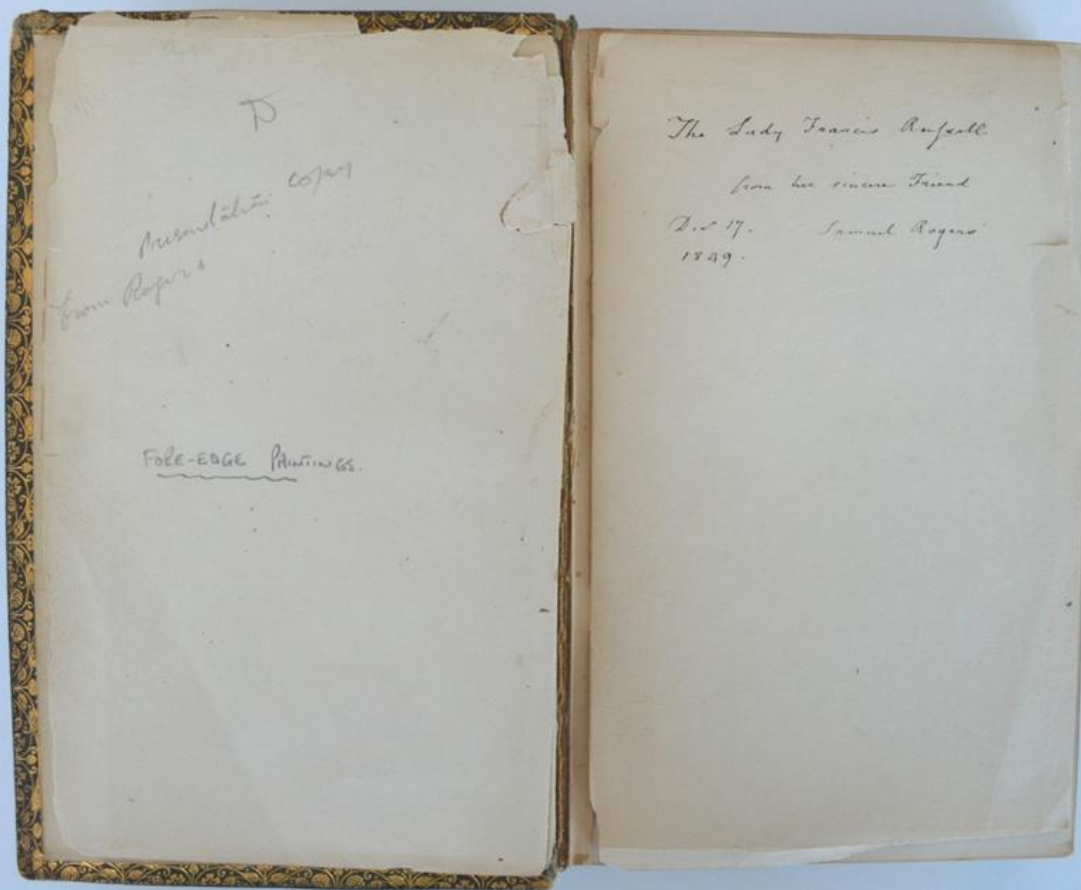 D
presentation copy
from Rogers
FORE-EDGE PAINTINGS.
The Lady Francis Russell
from her sincere Friend
17. Samuel Rogers
1849.